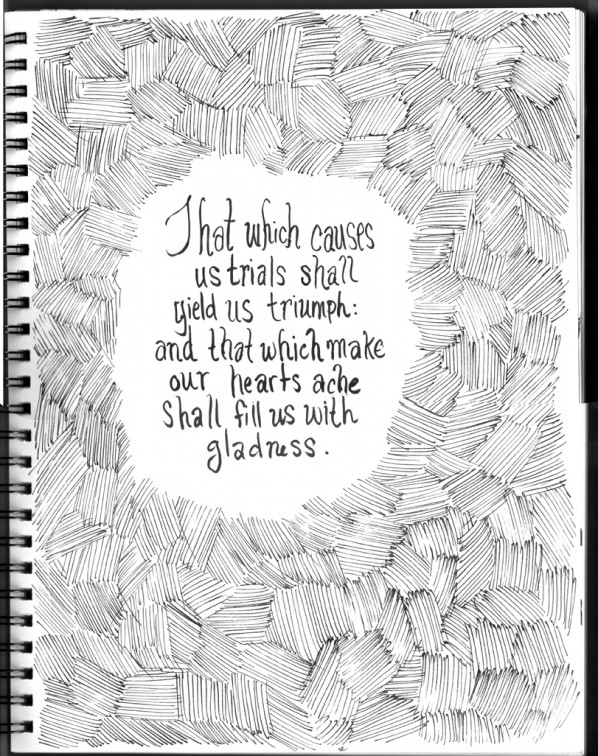 That which causes
us trials shall
yield us triumph:
and that which make
our hearts ache
shall fill us with
gladness.